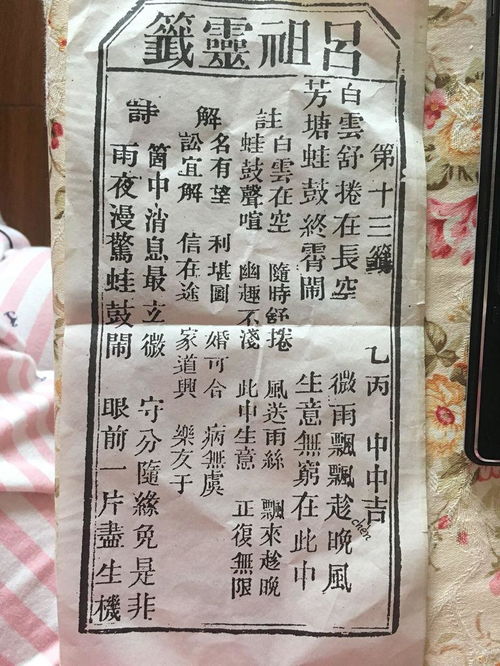 呂祖靈籤
第十三籤 乙丙 中中吉
白雲舒捲在長空 微雨飄飄趁晚風
chèn
芳塘蛙鼓終霄鬧 生意無窮在此中
註 白雲在空 隨時舒捲 風送雨絲 飄來趁晚
蛙鼓聲喧 幽趣不淺 此中生意 正復無限
解 名有望 利堪圖 婚可合 病無虞
訟宜解 信在途 家道興 樂友于
詩 箇中消息最玄微 守分隨緣免是非
雨夜漫驚蛙鼓鬧 眼前一片盡生機